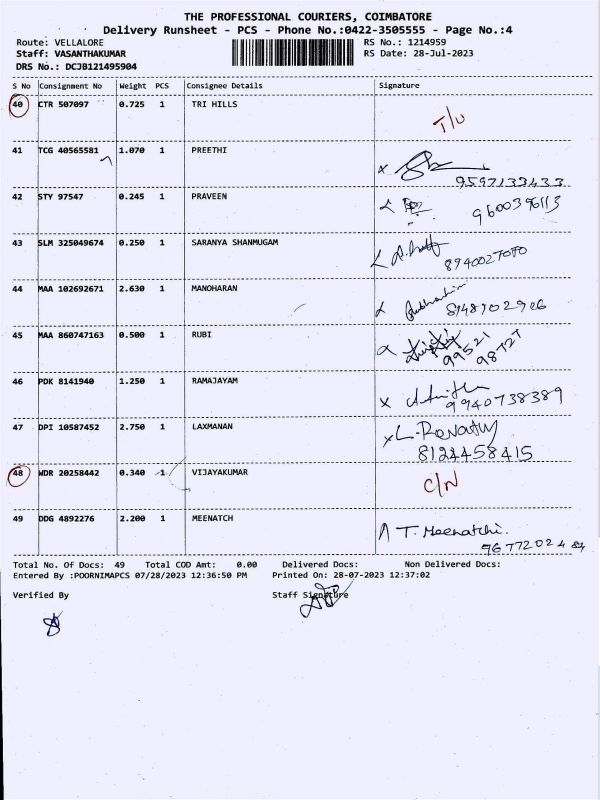 THE PROFESSIONAL COURIERS, COIMBATORE
Delivery Runsheet - PCS - Phone No.:0422-3505555 - Page No.:4
Route: VELLALORE RS No.: 1214959
Staff: VASANTHAKUMAR RS Date: 28-Jul-2023
DRS No.: DCJB121495904
S No Consignment No Weight PCS Consignee Details Signature
40 CTR 507097 0.725 1 TRI HILLS T/U
41 TCG 40565581 1.070 1 PREETHI
9597133433
42 STY 97547 0.245 1 PRAVEEN
9600396113
43 SLM 325049674 0.250 1 SARANYA SHANMUGAM
8940027070
44 MAA 102692671 2.630 1 MANOHARAN
8148702926
45 MAA 860747163 0.500 1 RUBI
99521
98727
46 PDK 8141940 1.250 1 RAMAJAYAM
9940738389
47 DPI 10587452 2.750 1 LAXMANAN
8124458415
48 WDR 20258442 0.340 1 VIJAYAKUMAR C/N
49 DDG 4892276 2.200 1 MEENATCH T. Meenatchi.
9677202484
Total No. Of Docs: 49 Total COD Amt: 0.00 Delivered Docs: Non Delivered Docs:
Entered By :POORNIMAPCS 07/28/2023 12:36:50 PM Printed On: 28-07-2023 12:37:02
Verified By Staff Signature